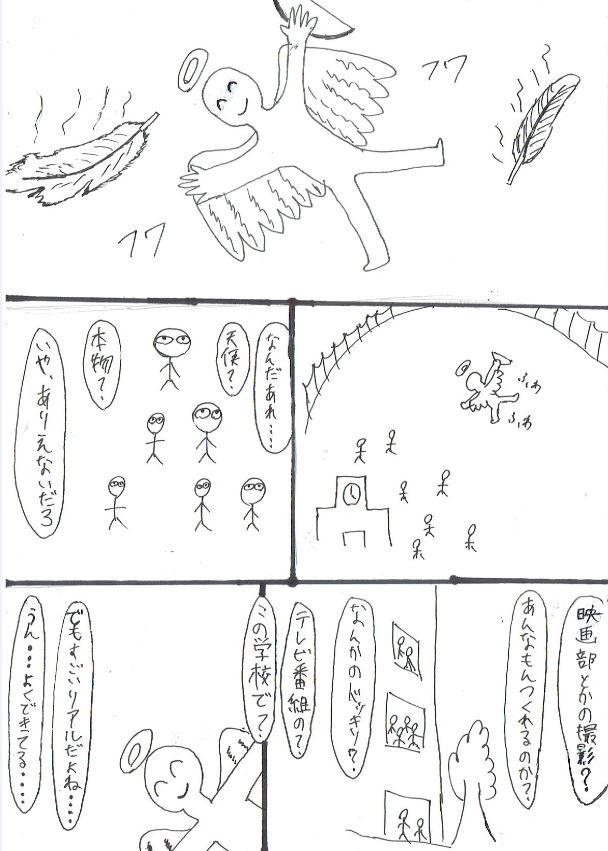 フワ
フワ
ふわ
ふわ
なんだあれ・・・
天使？
本物？
いや、ありえないだろ
映画部とかの撮影？
あんなもんつくれるのか？
なんかのドッキリ？
テレビ番組の？
この学校で？
でもすごいリアルだよね・・・・
うん・・・・よくできてる・・・・